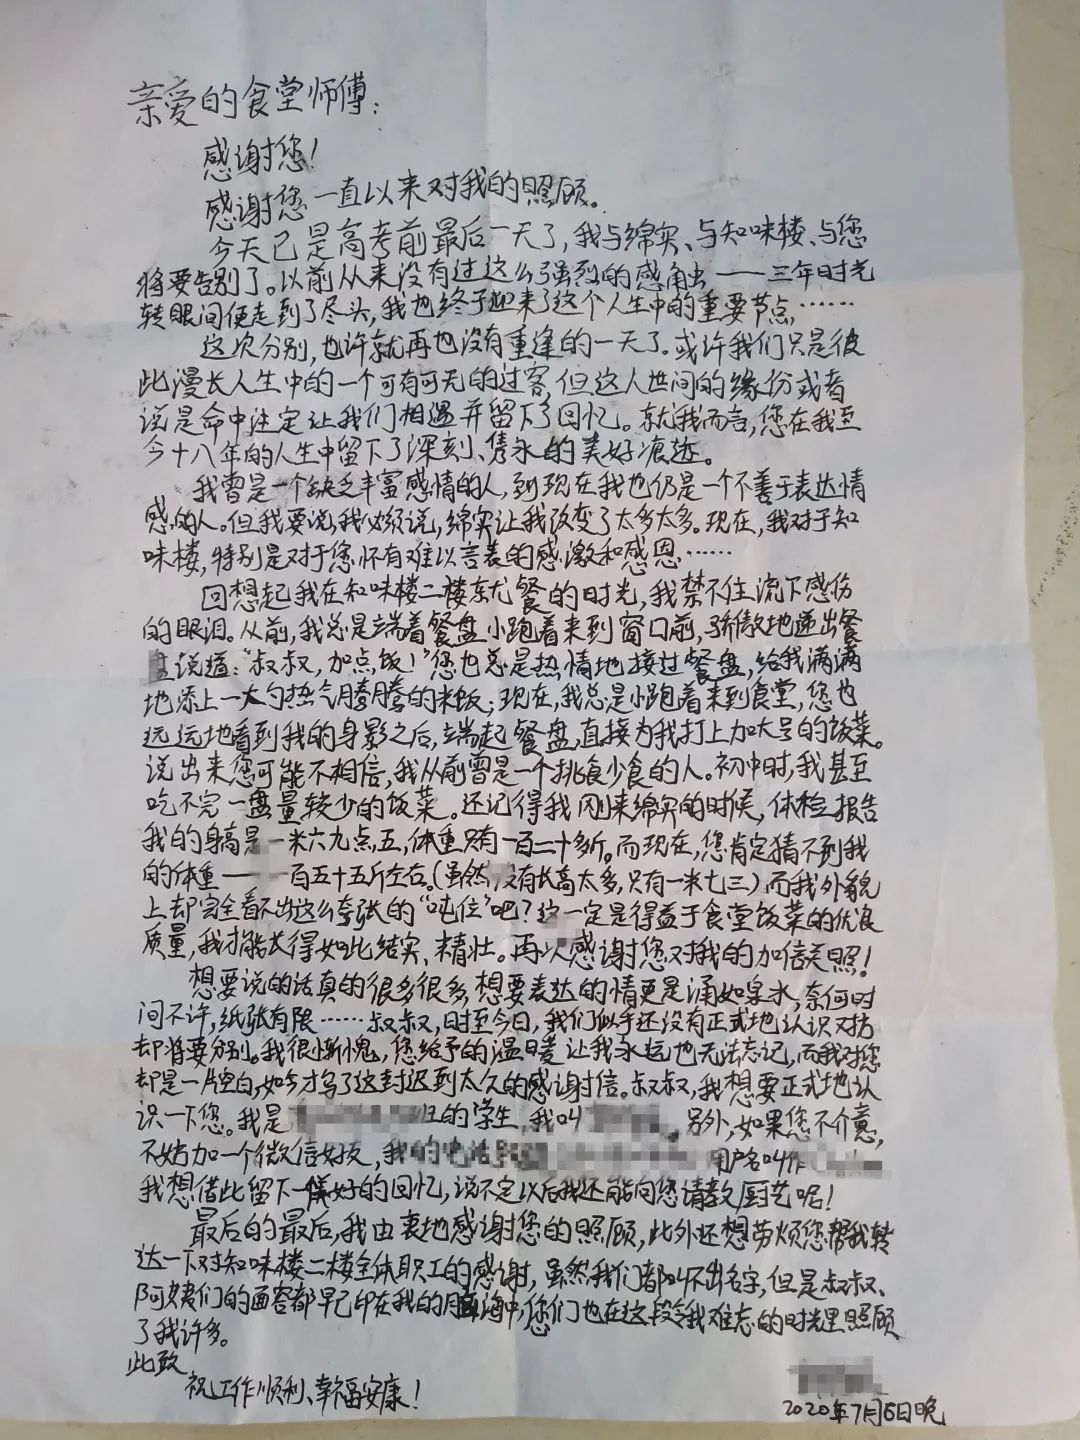 亲爱的食堂师傅：
感谢您！
感谢您一直以来对我的照顾。
今天已是高考前最后一天了，我与绵实、与知味楼、与您
将要告别了。以前从来没有过这么强烈的感触——三年时光
转眼间便走到了尽头，我也终于迎来了这个人生中的重要节点……
这次分别，也许就再也没有重逢的一天了。或许我们只是彼
此漫长人生中的一个可有可无的过客，但这人世间的缘份或者
说是命中注定让我们相遇并留下了回忆。就我而言，您在我至
今十八年的人生中留下了深刻、隽永的美好痕迹。
我曾是一个缺乏丰富感情的人，到现在我也仍是一个不善于表达情
感的人。但我要说，我必须说，绵实让我改变了太多太多。现在，我对于知
味楼，特别是对于您怀有难以言表的感激和感恩……
回想起我在知味楼二楼就餐的时光，我禁不住流下感伤
的眼泪。从前，我总是端着餐盘小跑着来到窗口前，骄傲地递出餐
盘说道：“叔叔，加点饭！”您也总是热情地接过餐盘，给我满满
地添上一大勺热气腾腾的米饭；现在，我总是小跑着来到食堂，您也
远远地看到我的身影之后，端起餐盘，直接为我打上加大号的饭菜。
说出来您可能不相信，我从前曾是一个挑食少食的人。初中时，我甚至
吃不完一盘量较少的饭菜。还记得我刚来绵实的时候，体检报告
我的身高是一米六九点五，体重只有一百二十多斤。而现在，您肯定猜不到我
的体重——一百五十五斤左右。（虽然没有长高太多，只有一米七三）而我外貌
上却完全看不出这么夸张的“吨位”吧？这一定是得益于食堂饭菜的优良
质量，我才能长得如此结实、精壮。再次感谢您对我的加倍关照！
想要说的话真的很多很多，想要表达的情更是涌如泉水，奈何时
间不许，纸张有限……叔叔，时至今日，我们似乎还没有正式地认识对方
却将要分别。我很惭愧，您给予的温暖让我永远也无法忘记，而我对您
却是一片空白，如今才写了这封迟到太久的感谢信。叔叔，我想要正式地认
识一下您。我是班的学生，我叫。另外，如果您不介意，
不妨加一个微信好友，我的电话号 用户名叫作
我想借此留下一份美好的回忆，说不定以后我还能向您请教厨艺呢！
最后的最后，我由衷地感谢您的照顾，此外还想劳烦您帮我转
达一下对知味楼二楼全体职工的感谢，虽然我们都叫不出名字，但是叔叔、
阿姨们的面容都早已印在我的脑海中，您们也在这段令我难忘的时光里照顾
了我许多。
此致
祝工作顺利、幸福安康！
2020年7月6日晚